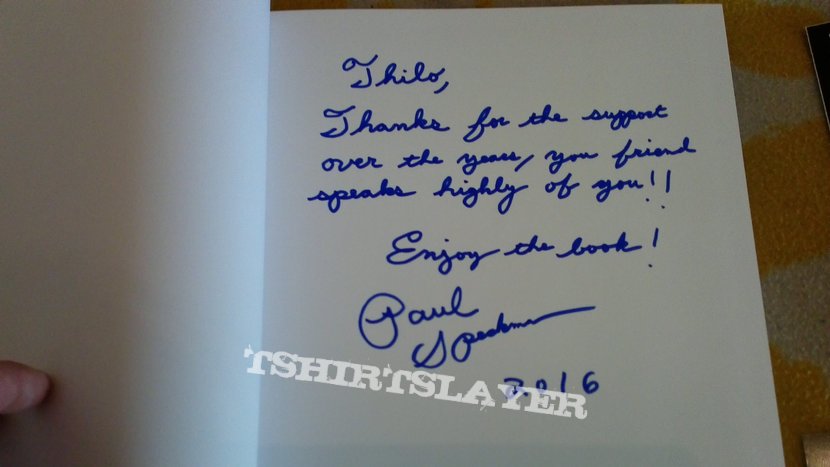 Thilo,
Thanks for the support
over the years, you friend
speaks highly of you!!
Enjoy the book!
Paul
Speckmann
2016
TSHIRTSLAYER